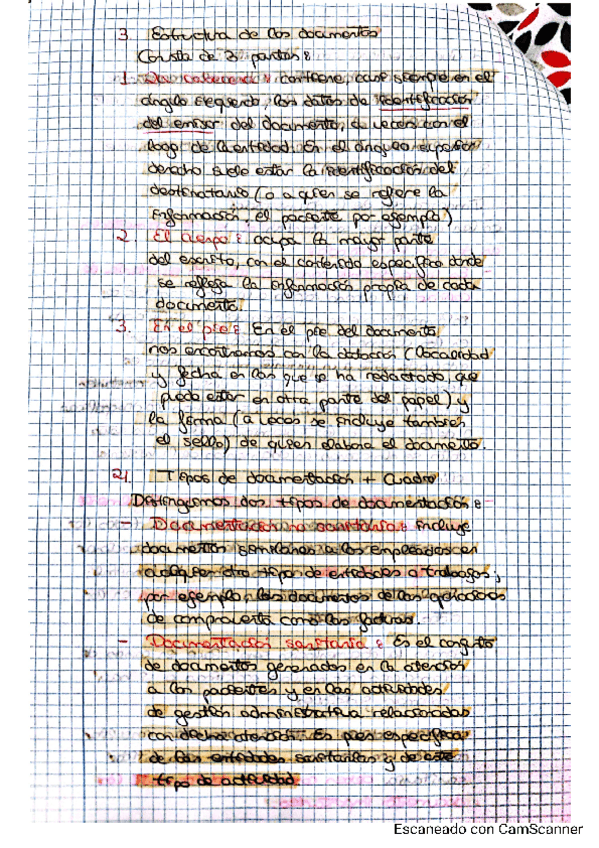 3. Estructura de los documentos
Consta de 3 partes:
1. La cabecera: contiene, casi siempre en el
ángulo izquierdo, los datos de identificación
del emisor del documento, a veces con el
logo de la entidad. En el ángulo superior
derecho suele estar la identificación del
destinatario (o a quien se refiere la
información, el paciente por ejemplo)
2. El cuerpo: ocupa la mayor parte
del escrito, con el contenido específico donde
se refleja la información propia de cada
documento.
3. En el pie: En el pie del documento
nos encontramos con la datación (localidad
y fecha en las que se ha redactado, que
puede estar en otra parte del papel) y
la firma (a veces se incluye también
el sello) de quien elabora el documento.
4. Tipos de documentación + Cuadro
Distinguimos dos tipos de documentación:
- Documentación no sanitaria: incluye
documentos similares a los empleados en
cualquier otro tipo de entidades o trabajos,
por ejemplo, los documentos de las operaciones
de compraventa como las facturas.
- Documentación sanitaria: Es el conjunto
de documentos generados en la atención
a los pacientes y en las actividades
de gestión administrativa relacionadas
con dicha atención. Es pues específica
de las entidades sanitarias y de este
tipo de actividad
Escaneado con CamScanner